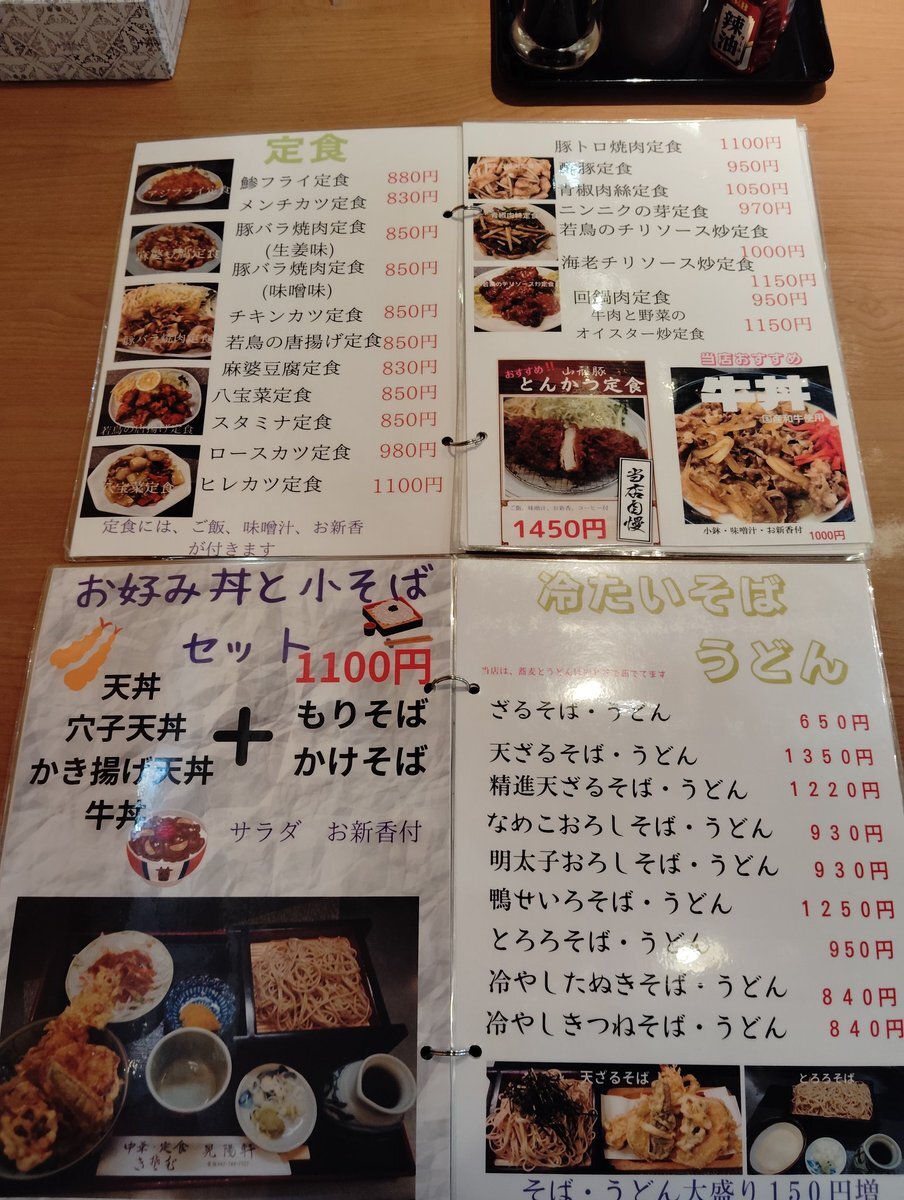 辣油
定食
鯵フライ定食 880円
メンチカツ定食 830円
豚バラ焼肉定食 850円
(生姜味)
豚バラ焼肉定食 850円
(味噌味)
チキンカツ定食 850円
若鳥の唐揚げ定食 850円
麻婆豆腐定食 830円
八宝菜定食 850円
スタミナ定食 850円
ロースカツ定食 980円
ヒレカツ定食 1100円
定食には、ご飯、味噌汁、お新香
が付きます
豚バラ焼肉定食
若鳥の唐揚げ定食
八宝菜定食
豚トロ焼肉定食 1100円
酢豚定食 950円
青椒肉絲定食 1050円
ニンニクの芽定食 970円
若鳥のチリソース炒定食
1000円
海老チリソース炒定食
1150円
回鍋肉定食 950円
牛肉と野菜の
オイスター炒定食 1150円
青椒肉絲定食
若鳥のチリソース炒定食
おすすめ!!
山形豚
とんかつ定食
当店自慢
ご飯、味噌汁、お新香、コーヒー付
1450円
当店おすすめ
牛丼
国産和牛使用
小鉢・味噌汁・お新香付 1000円
お好み丼と小そば
セット
1100円
天丼
穴子天丼
かき揚げ天丼
牛丼
+
もりそば
かけそば
サラダ お新香付
中華・定食 晃陽軒
冷たいそば
うどん
当店は、蕎麦とうどんは
茹でてます
ざるそば・うどん 650円
天ざるそば・うどん 1350円
精進天ざるそば・うどん 1220円
なめこおろしそば・うどん 930円
明太子おろしそば・うどん 930円
鴨せいろそば・うどん 1250円
とろろそば・うどん 950円
冷やしたぬきそば・うどん 840円
冷やしきつねそば・うどん 840円
天ざるそば
とろろそば
そば・うどん大盛り150円増